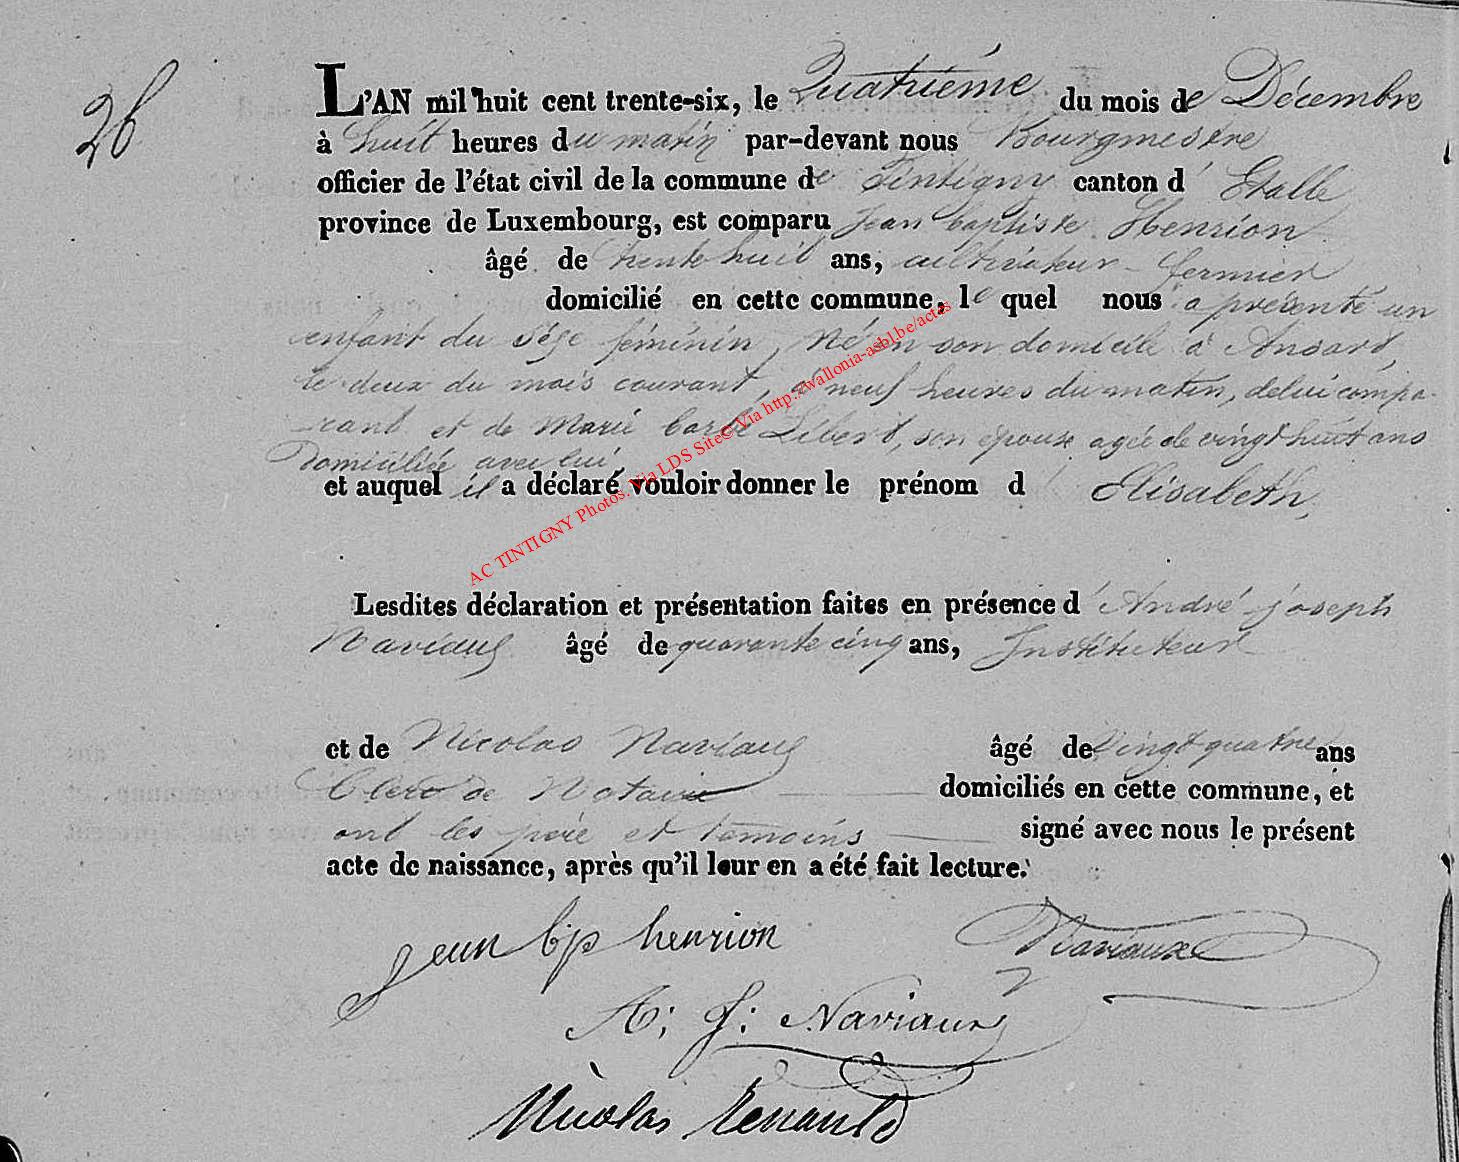 26
L'AN mil huit cent trente-six, le Quatriéme du mois de Décembre
à huit heures du matin par-devant nous Bourgmestre
officier de l'état civil de la commune de Tintigny canton d' Etalle
province de Luxembourg, est comparu Jean baptiste Henrion
âgé de trente huit ans, cultivateur - fermier
domicilié en cette commune, le quel nous a présenté un
enfant du sexe féminin, né en son domicile à Ansart,
le deux du mois courant, à neuf heures du matin, de lui compa-
-rant et de Marie barbe Libert, son épouse agée de vingt huit ans
Domiciliée avec lui
et auquel il a déclaré vouloir donner le prénom d Elisabeth,
AC TINTIGNY Photos. Via LDS Site© Via http://wallonia-asbl.be/actes
Lesdites déclaration et présentation faites en présence d' André-joseph
Naviaux âgé de quarante cinq ans, Instituteur
et de Nicolas Naviaux âgé de vingt quatre ans
Clerc de Notaire domiciliés en cette commune, et
ont les père et témoins signé avec nous le présent
acte de naissance, après qu'il leur en a été fait lecture.
jean bp henrion Naviaux
A: J: Naviaux
Nicolas Renauld